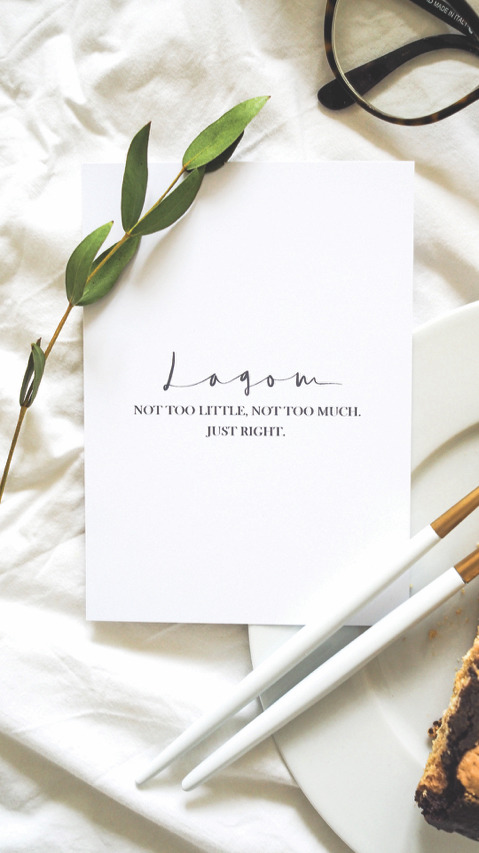 MADE IN ITALY
Lagom
NOT TOO LITTLE, NOT TOO MUCH.
JUST RIGHT.